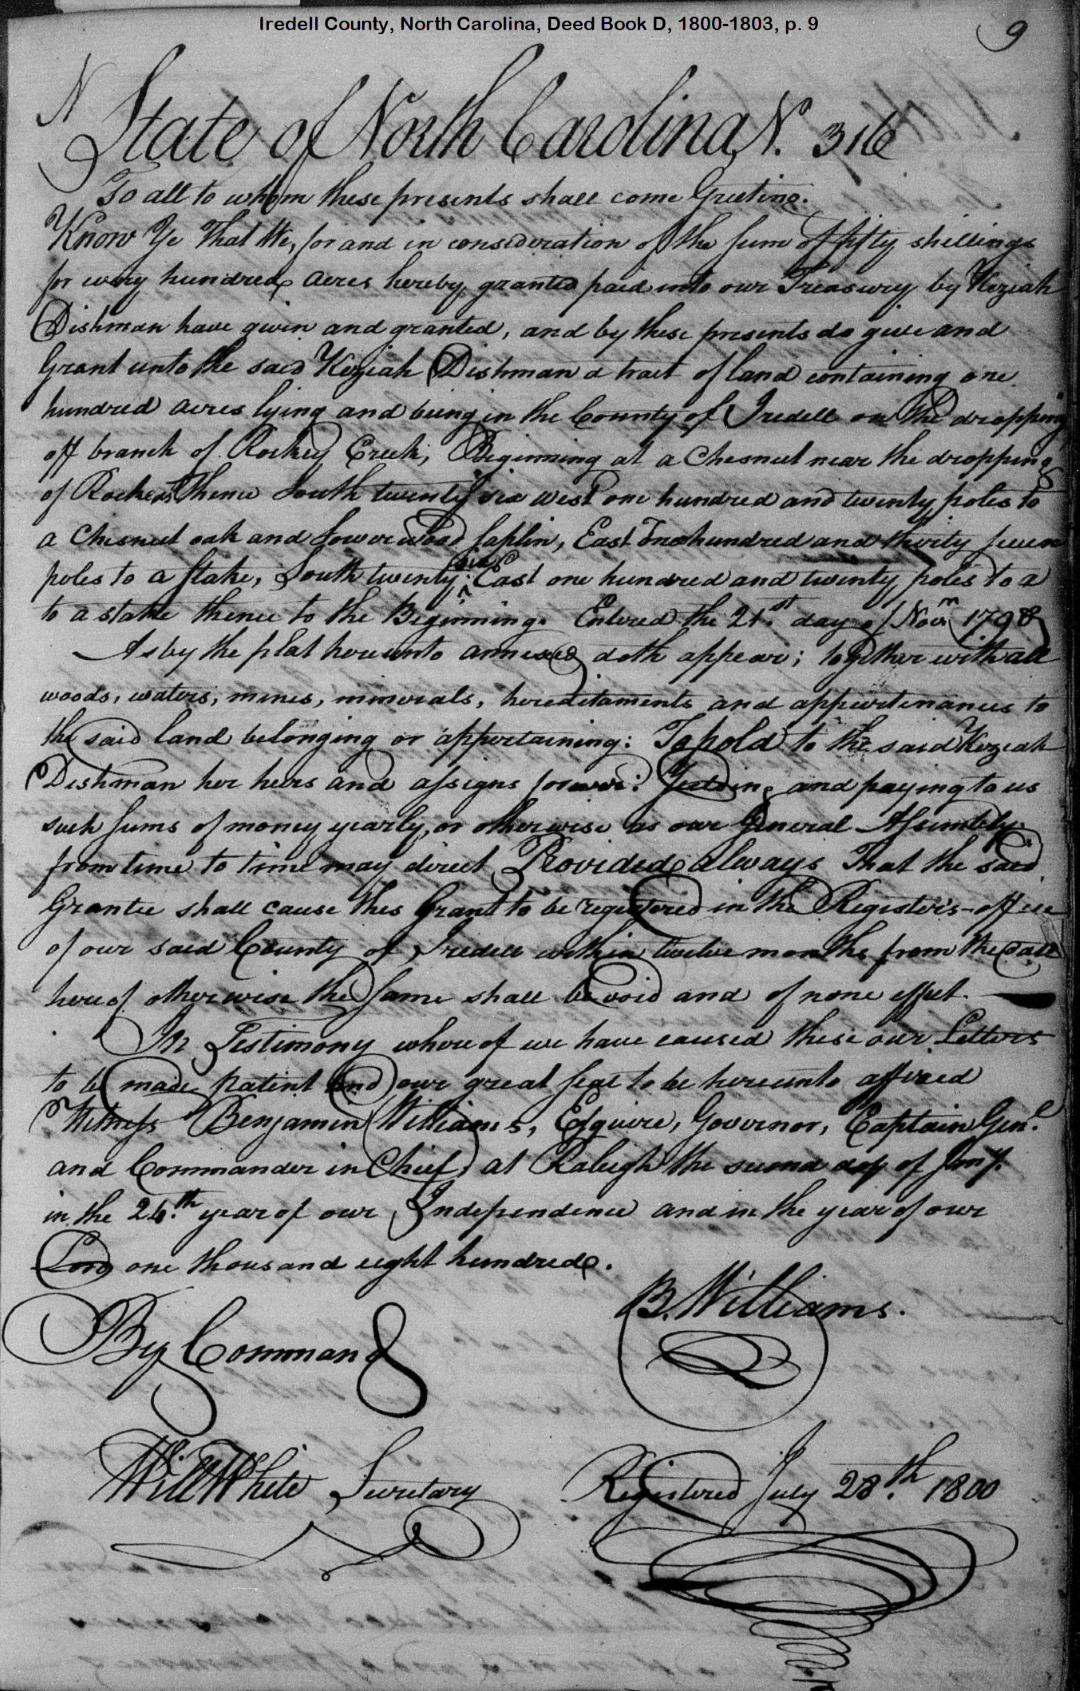 Iredell County, North Carolina, Deed Book D, 1800-1803, p. 9
9
N State of North Carolina N. 316
To all to whom these presents shall come Greeting.
Know Ye That We, for and in consideration of the sum of fifty shillings
for every hundred acres hereby granted paid into our Treasury by Keziah
Dishman have given and granted, and by these presents do give and
Grant unto the said Keziah Dishman a tract of land containing one
hundred acres lying and being in the County of Iredell on the dropping
off branch of Rockey Creek, Beginning at a Chesnut near the dropping
of Rockers Thence South twenty six west one hundred and twenty poles to
a Chesnut oak and Sowerwood saplin, East One hundred and thirty seven
poles to a stake, South twenty East one hundred and twenty poles to a
to a stake thence to the Beginning. Entered the 21st. day of Novm. 1798
As by the plat hereunto annexed doth appear; together with all
woods, waters, mines, minerals, hereditaments and appurtenances to
the said land belonging or appertaining: To hold to the said Keziah
Dishman her heirs and assigns forever: Yielding and paying to us
such sums of money yearly, or otherwise as our General Assembly
from time to time may direct Provided always That the said
Grantee shall cause this Grant to be registered in the Register's office
of our said County of Iredell within twelve months from the date
hereof otherwise the same shall be void and of none effect.
In Testimony whereof we have caused these our Letters
to be made patent and our great seal to be hereunto affixed
Witness Benjamin Williams, Esquire, Governor, Captain Genl.
and Commander in Chief, at Raleigh the second day of Jany.
in the 24.th year of our Independence and in the year of our
Lord one thousand eight hundred.
B. Williams.
By Command
Will White Secretary
Registered July 28.th 1800